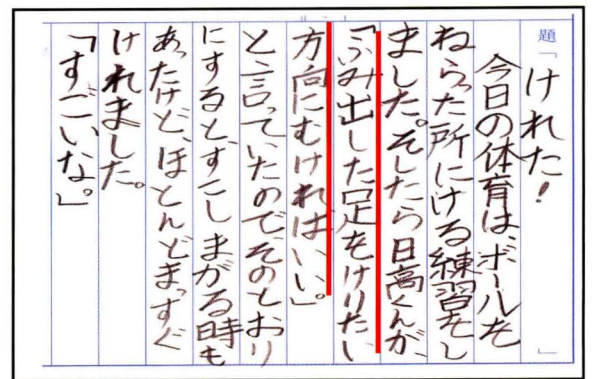 題「けれた！」
今日の体育は、ボールを
ねらった所にける練習をし
ました。そしたら日高くんが、
「ふみ出した足をけりたい
方向にむければいい。」
と言っていたのでそのとおり
にすると、すこしまがる時も
あったけど、ほとんどまっすぐ
けれました。
「すごいな。」